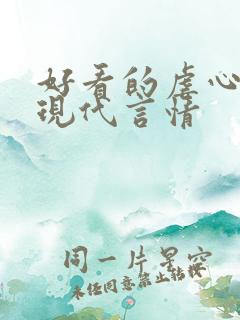 好看的虐心
現代言情
同一片星空
未经同意禁止转载